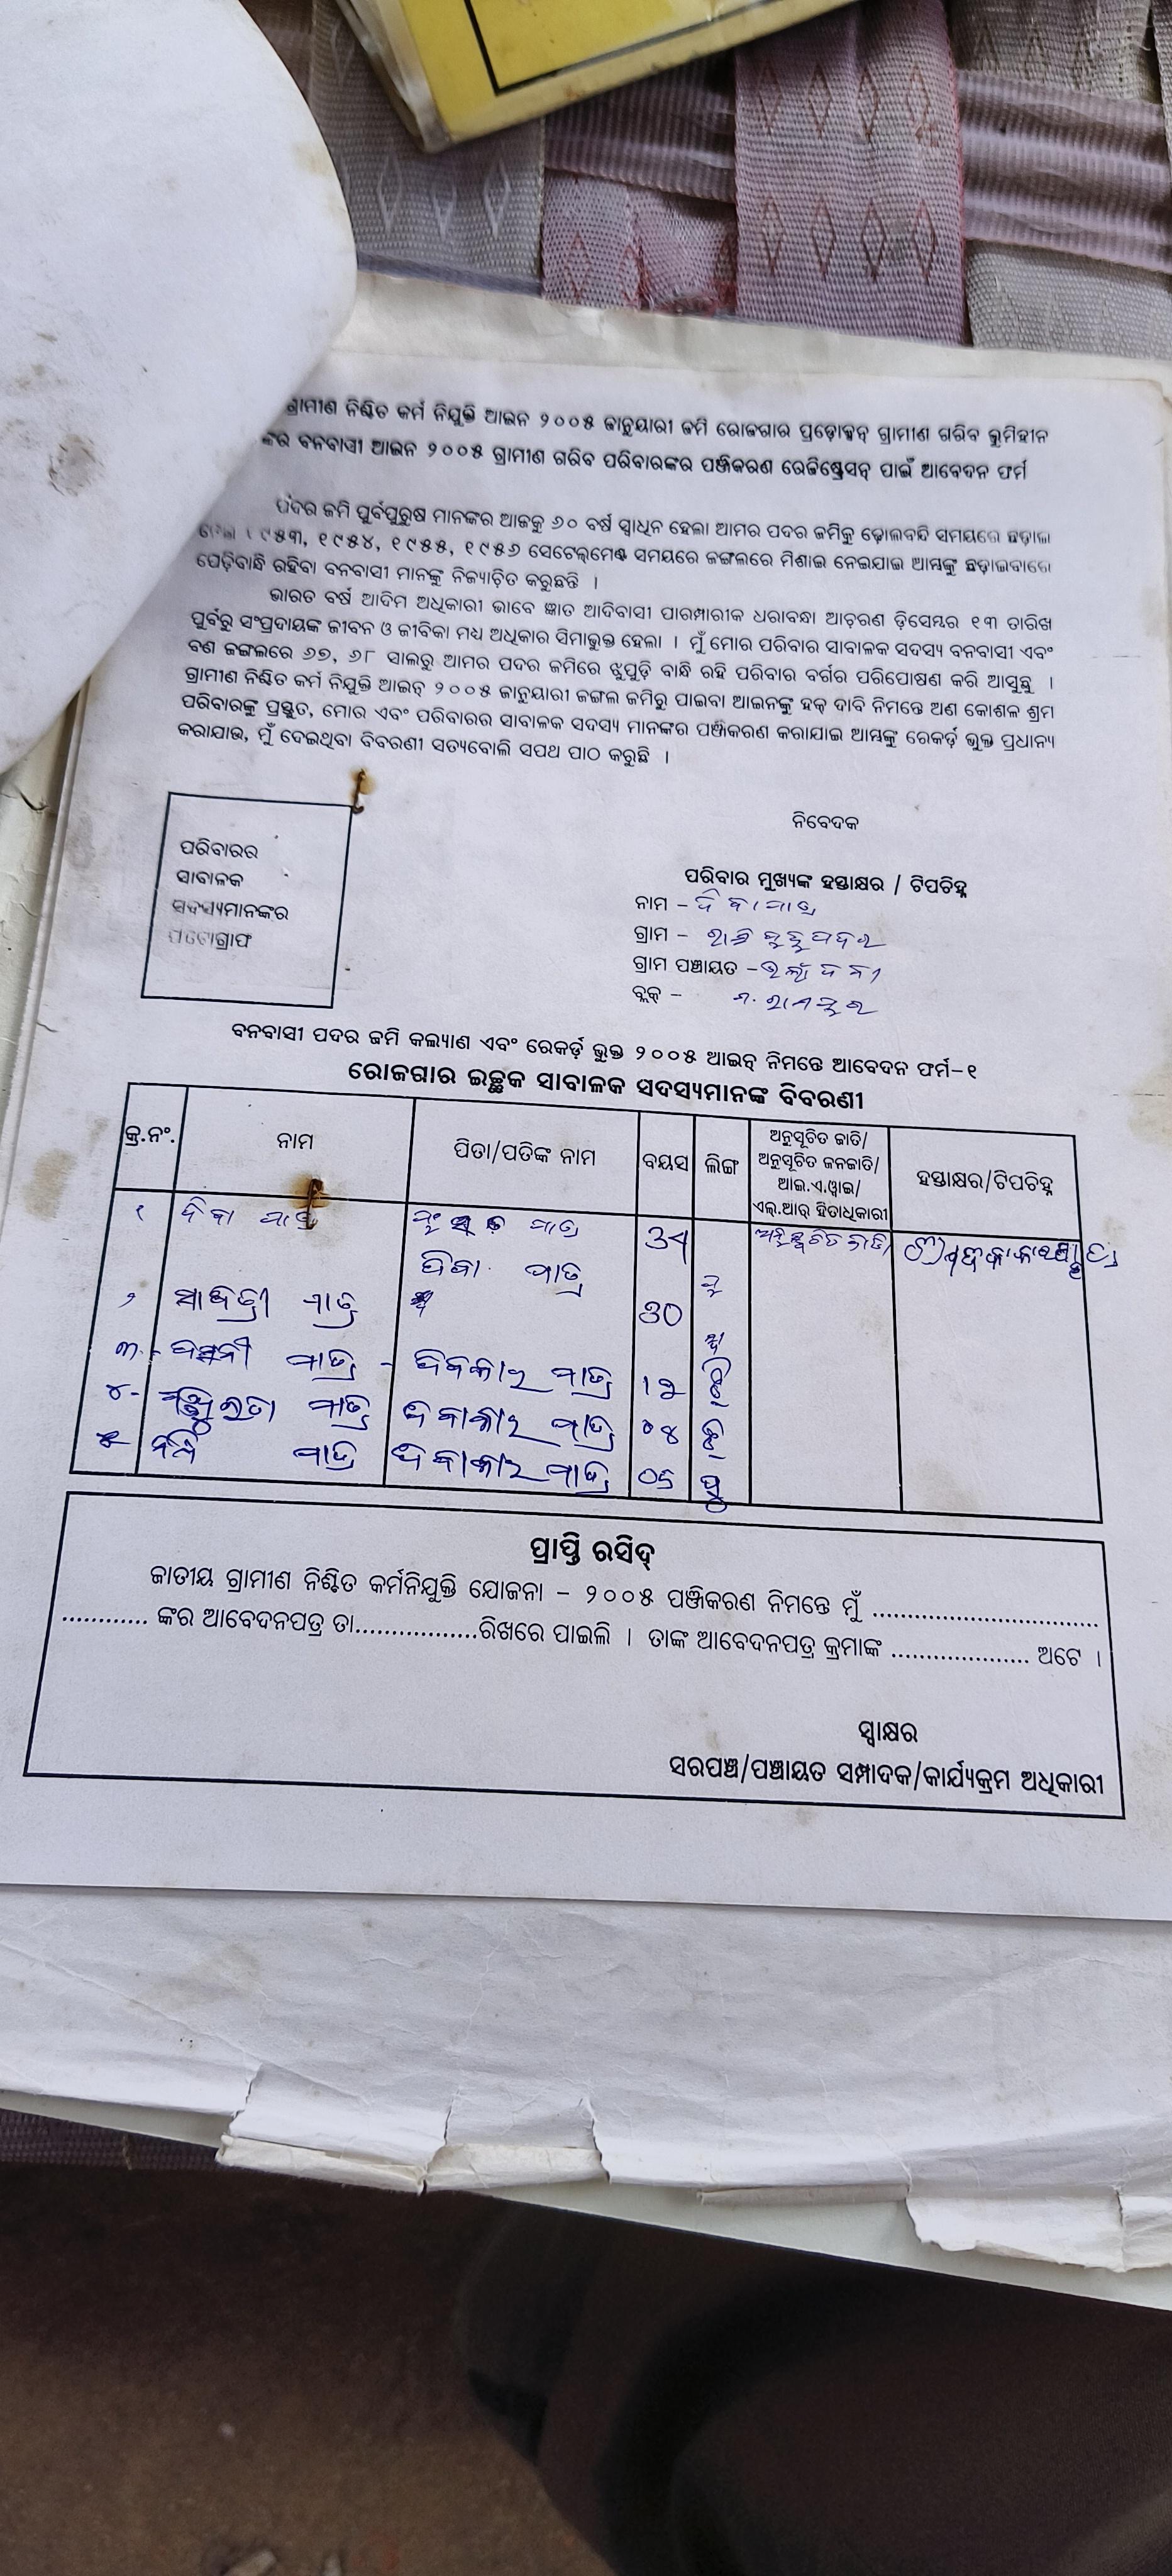 ଗ୍ରାମୀଣ ନିଶ୍ଚିତ କର୍ମ ନିଯୁକ୍ତି ଆଇନ ୨୦୦୫ ଜାନୁୟାରୀ ଜମି ରୋଜଗାର ପ୍ରଡ଼ୋକ୍ସନ୍ ଗ୍ରାମୀଣ ଗରିବ ଭୂମିହୀନ
ଙ୍କର ବନବାସୀ ଆଇନ ୨୦୦୫ ଗ୍ରାମୀଣ ଗରିବ ପରିବାରଙ୍କର ପଞ୍ଜିକରଣ ରେଜିଷ୍ଟ୍ରେସନ୍ ପାଇଁ ଆବେଦନ ଫର୍ମ
ପଦର ଜମି ପୁର୍ବପୁରୁଷ ମାନଙ୍କର ଆଜକୁ ୬୦ ବର୍ଷ ସ୍ୱାଧିନ ହେଲା ଆମର ପଦର ଜମିକୁ ଢ଼ୋଲବନ୍ଦି ସମୟରେ ଛଡ଼ାଇ
୧୯୫୩, ୧୯୫୪, ୧୯୫୫, ୧୯୫୬ ସେଟେଲ୍‌ମେଣ୍ଟ ସମୟରେ ଜଙ୍ଗଲରେ ମିଶାଇ ନେଇଯାଇ ଆମ୍ଭଙ୍କୁ ଛଡ଼ାଇବାରେ
ପେଡ଼ିବାନ୍ଧି ରହିବା ବନବାସୀ ମାନଙ୍କୁ ନିଜ୍ୟାଡ଼ିତ କରୁଛନ୍ତି ।
ଭାରତ ବର୍ଷ ଆଦିମ ଅଧିକାରୀ ଭାବେ ଜ୍ଞାତ ଆଦିବାସୀ ପାରମ୍ପାରୀକ ଧରାବନ୍ଧା ଆଚ଼ରଣ ଡ଼ିସେମ୍ବର ୧୩ ତାରିଖ
ପୁର୍ବରୁ ସଂପ୍ରଦାୟଙ୍କ ଜୀବନ ଓ ଜୀବିକା ମଧ୍ୟ ଅଧିକାର ସିମାଭୁକ୍ତ ହେଲା । ମୁଁ ମୋର ପରିବାର ସାବାଳକ ସଦସ୍ୟ ବନବାସୀ ଏବଂ
ବଣ ଜଙ୍ଗଲରେ ୬୭, ୬୮ ସାଲରୁ ଆମର ପଦର ଜମିରେ ଝୁପୁଡ଼ି ବାନ୍ଧି ରହି ପରିବାର ବର୍ଗର ପରିପୋଷଣ କରି ଆସୁଛୁ ।
ଗ୍ରାମୀଣ ନିଶ୍ଚିତ କର୍ମ ନିଯୁକ୍ତି ଆଇନ୍ ୨୦୦୫ ଜାନୁୟାରୀ ଜଙ୍ଗଲ ଜମିରୁ ପାଇବା ଆଇନଙ୍କୁ ହକ୍ ଦାବି ନିମନ୍ତେ ଅଣ କୋଶଳ ଶ୍ରମ
ପରିବାରଙ୍କୁ ପ୍ରସ୍ତୁତ, ମୋର ଏବଂ ପରିବାରର ସାବାଳକ ସଦସ୍ୟ ମାନଙ୍କର ପଞ୍ଜିକରଣ କରାଯାଇ ଆମ୍ଭଙ୍କୁ ରେକର୍ଡ଼ ଭୁକ୍ତ ପ୍ରଧାନ୍ୟ
କରାଯାଉ, ମୁଁ ଦେଇଥିବା ବିବରଣୀ ସତ୍ୟବୋଲି ସପଥ ପାଠ କରୁଛି ।
ପରିବାରର
ସାବାଳକ
ସଦସ୍ୟମାନଙ୍କର
ଫଟୋଗ୍ରାଫ
ନିବେଦକ
ପରିବାର ମୁଖ୍ୟଙ୍କ ହସ୍ତାକ୍ଷର / ଟିପଚିହ୍ନ
ନାମ - ଦିବା ପାତ୍ର
ଗ୍ରାମ -
ଗ୍ରାମ ପଞ୍ଚାୟତ -
ବ୍ଲକ୍ -
ବନବାସୀ ପଦର ଜମି କଲ୍ୟାଣ ଏବଂ ରେକର୍ଡ଼ ଭୁକ୍ତ ୨୦୦୫ ଆଇନ୍ ନିମନ୍ତେ ଆବେଦନ ଫର୍ମ-୧
ରୋଜଗାର ଇଚ୍ଛୁକ ସାବାଳକ ସଦସ୍ୟମାନଙ୍କ ବିବରଣୀ
କ୍ର.ନଂ. ନାମ ପିତା/ପତିଙ୍କ ନାମ ବୟସ ଲିଙ୍ଗ ଅନୁସୂଚିତ ଜାତି/ ହସ୍ତାକ୍ଷର/ଟିପଚିହ୍ନ
ଅନୁସୂଚିତ ଜନଜାତି/
ଆଇ.ଏ.ୱାଇ/
ଏଲ୍.ଆର୍ ହିତାଧିକାରୀ
୧ ଦିବା ପାତ୍ର ପାତ୍ର 34 ଅନୁସୂଚିତ ଜାତି
୨ ସାବିତ୍ରୀ ପାତ୍ର ଦିବା ପାତ୍ର 30
୩ ପାତ୍ର - ଦିବାକାର ପାତ୍ର ସ୍ତ୍ରୀ
୪- ପାତ୍ର ଦିବାକାର ପାତ୍ର ସ୍ତ୍ରୀ
୫ ପାତ୍ର ଦିବାକାର ପାତ୍ର 05 ପୁ
ପ୍ରାପ୍ତି ରସିଦ୍
ଜାତୀୟ ଗ୍ରାମୀଣ ନିଶ୍ଚିତ କର୍ମନିଯୁକ୍ତି ଯୋଜନା - ୨୦୦୫ ପଞ୍ଜିକରଣ ନିମନ୍ତେ ମୁଁ ................................
............ ଙ୍କର ଆବେଦନପତ୍ର ତା.................ରିଖରେ ପାଇଲି । ତାଙ୍କ ଆବେଦନପତ୍ର କ୍ରମାଙ୍କ .................... ଅଟେ ।
ସ୍ୱାକ୍ଷର
ସରପଞ୍ଚ/ପଞ୍ଚାୟତ ସମ୍ପାଦକ/କାର୍ଯ୍ୟକ୍ରମ ଅଧିକାରୀ